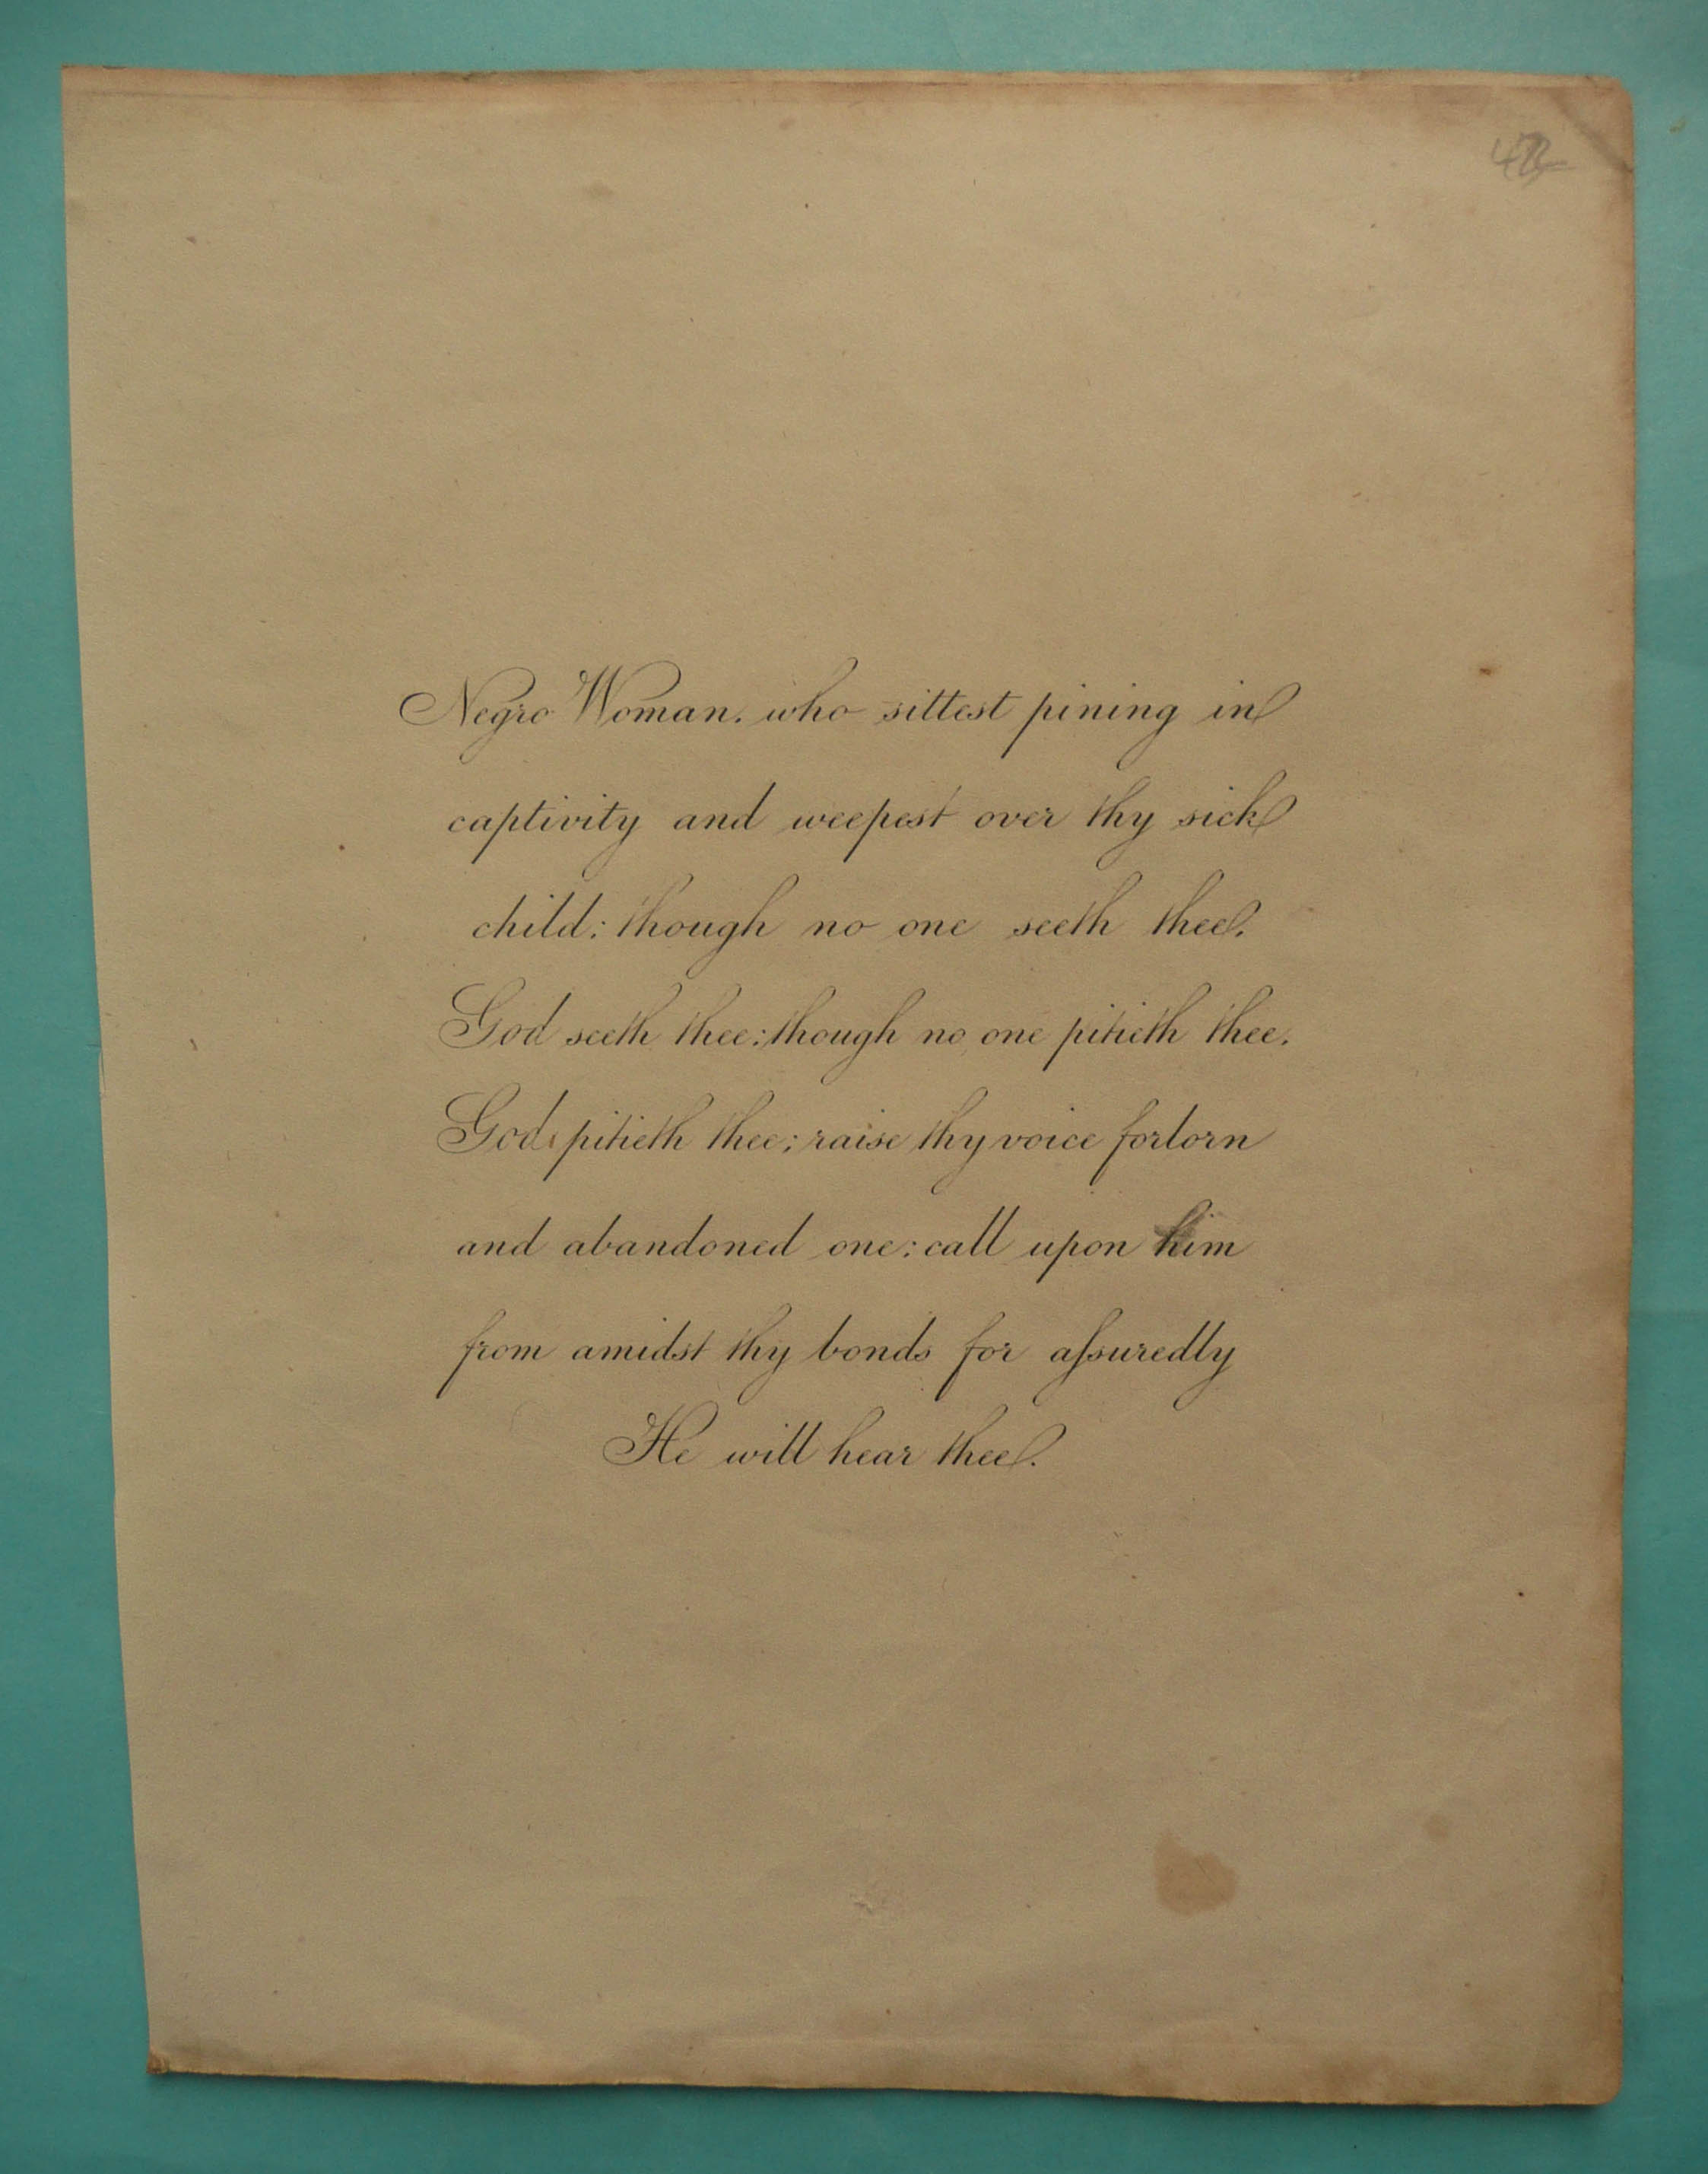 Negro Woman, who sittest pining in
captivity and weepest over thy sick
child: though no one seeth thee,
God seeth thee: though no one pitieth thee,
God pitieth thee; raise thy voice forlorn
and abandoned one: call upon him
from amidst thy bonds for aſsuredly
He will hear thee.